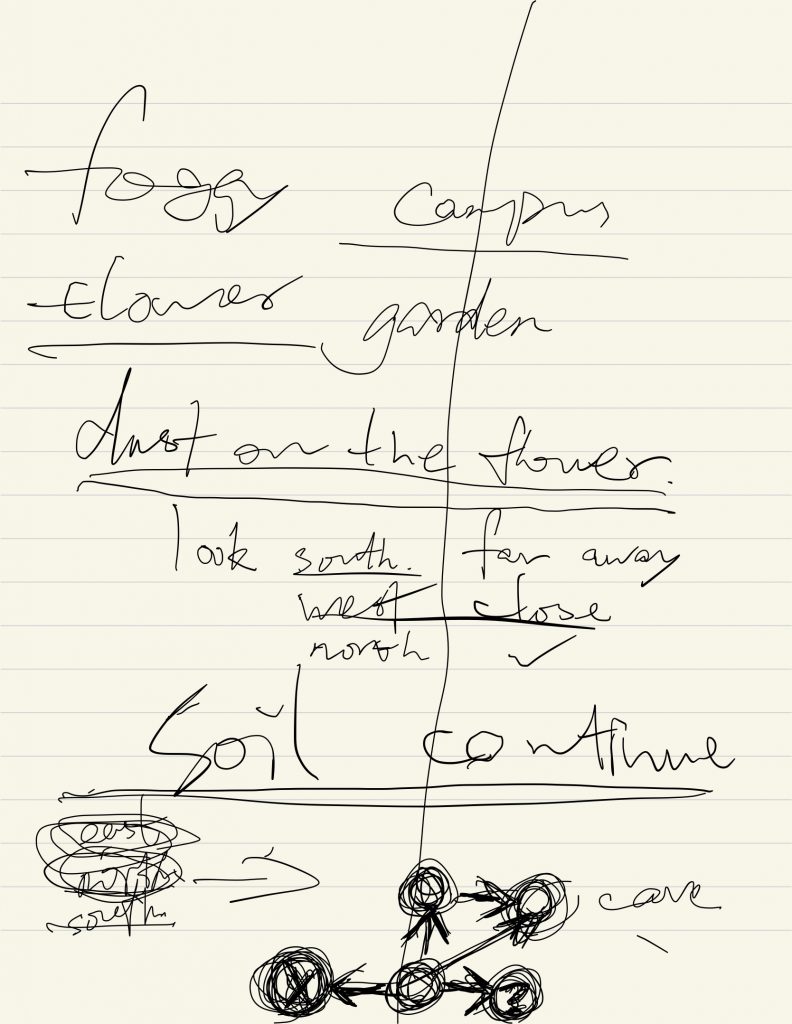 foggy campus
flower garden
dust on the flower.
look south. far away
west close
north
soil continue
east
north
south
cave